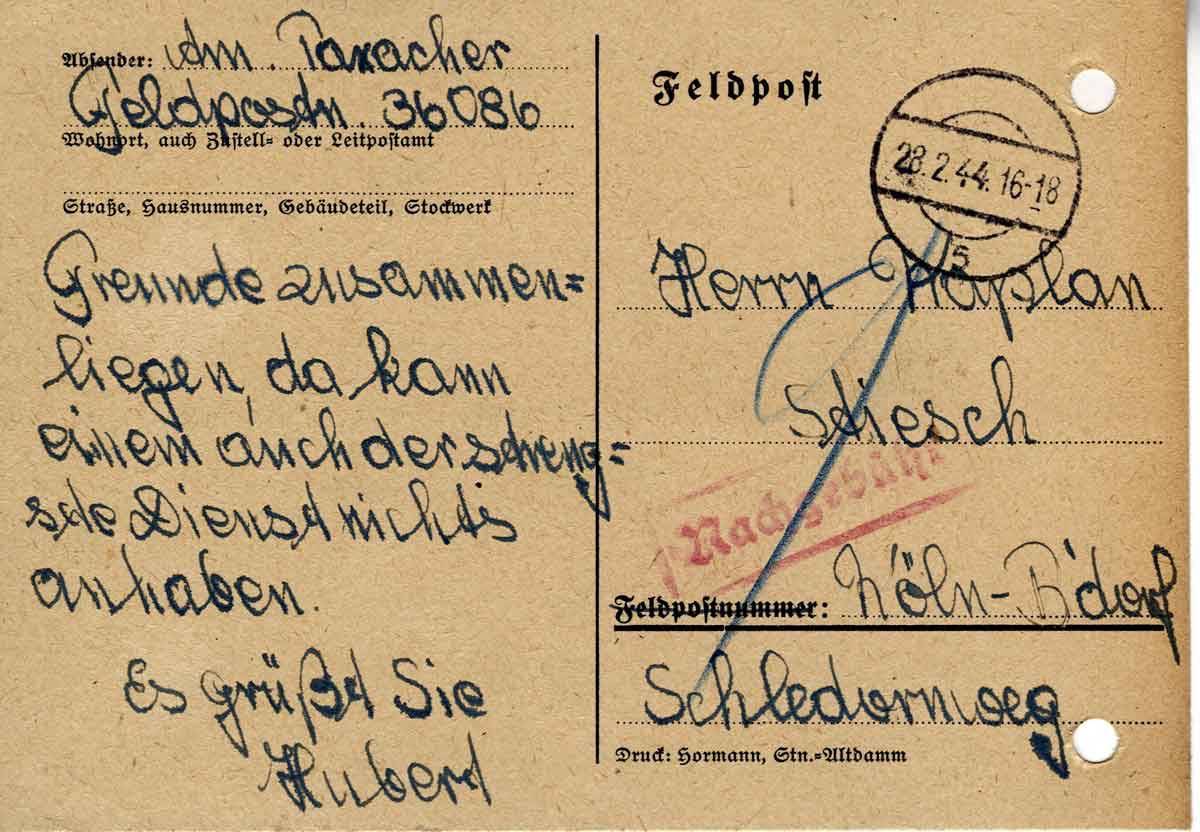 Absender: Am. Paracher
Feldpostn. 36086
Wohnort, auch Zustell= oder Leitpostamt
Straße, Hausnummer, Gebäudeteil, Stockwerk
Freunde zusammen=
liegen, da kann
einem auch der streng=
ste Dienst nichts
anhaben.
Es grüßt Sie
Hubert
Feldpost
28.2.44.16-18
5
Herrn Kaplan
Stiesch
Nachgebühr
Feldpostnummer: Köln-B'dorf
Druck: Hormann, Stn.=Altdamm